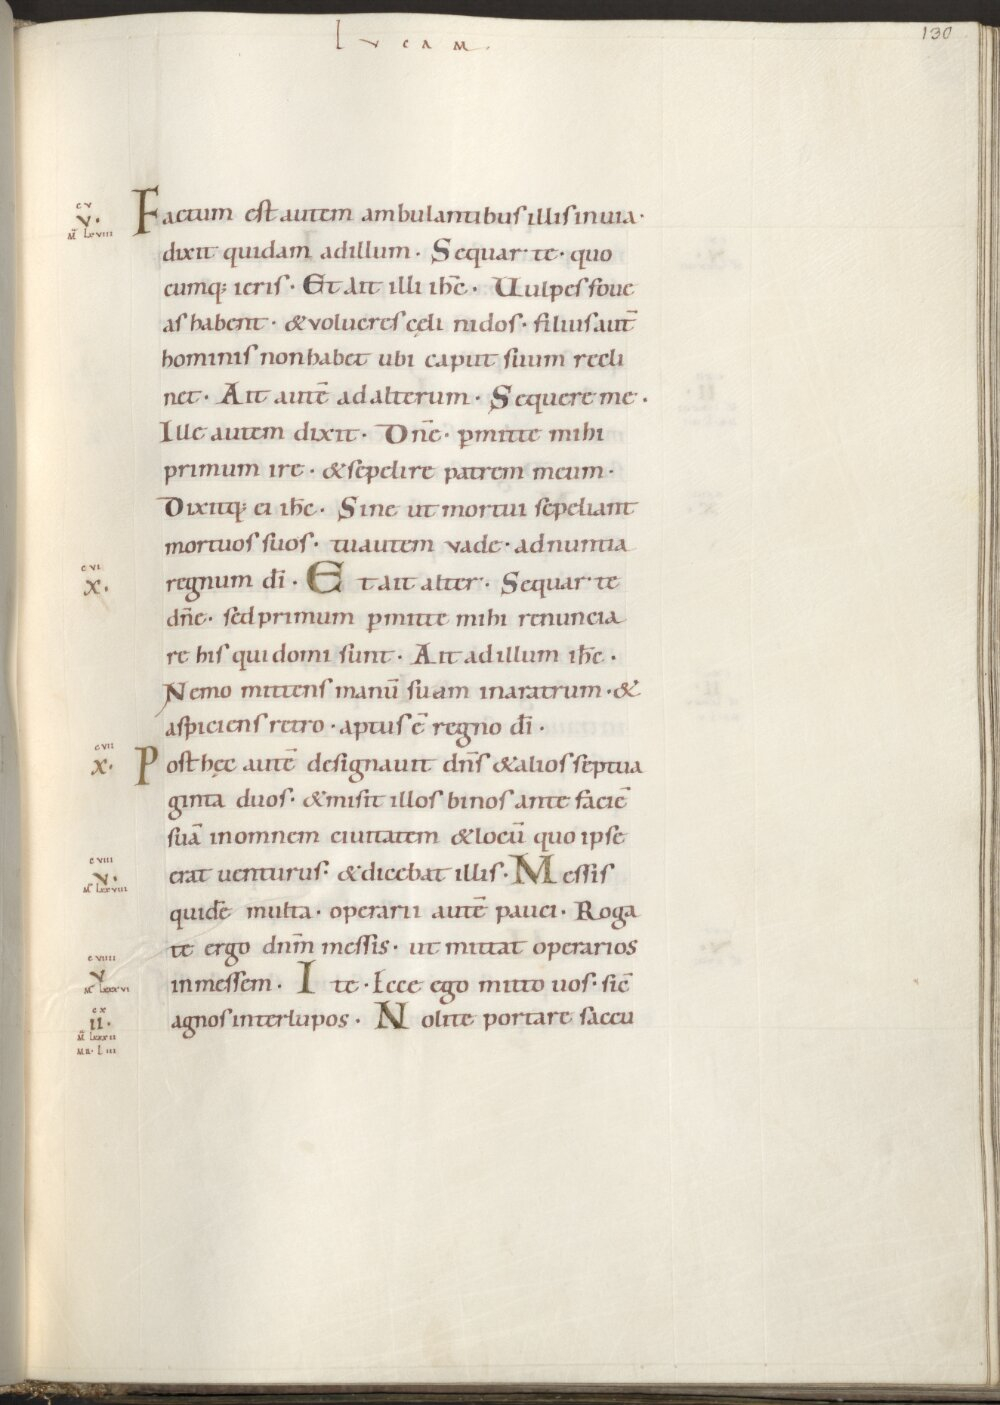 LVCAM.
130
CV
V.
M̄ LXVIII
Factum est autem ambulantibus illis in uia·
dixit quidam ad illum· Sequar te· quo
cumq; ieris· Et ait illi ih̄c· Uulpes foue
as habent· & volucres cęli nidos· filius aut̄
hominis non habet ubi caput suum recli
net· Ait autē ad alterum· Sequere me·
Ille autem dixit· Dn̄e· p̄mitte mihi
primum ire· & sepelire patrem meum·
Dixitq; ei ih̄c· Sine ut mortui sepeliant
mortuos suos· tu autem vade· adnuntia
CVI
X.
regnum dī· Et ait alter· Sequar te
dn̄e· sed primum p̄mitte mihi renuncia
re his qui domi sunt· Ait ad illum ih̄c·
Nemo mittens manū suam in aratrum· &
aspiciens retro· aptus ē regno dī·
CVII
X.
Post hęc autē designauit dn̄s & alios septua
ginta duos· & misit illos binos ante faciē
suā in omnem ciuitatem & locū quo ipse
CVIII
V.
M̄ LXXVIII
erat uenturus· & dicebat illis· Messis
quidē multa· operarii autē pauci· Roga
te ergo dn̄m messis· ut mittat operarios
CVIIII
V
M̄ LXXXVI
in messem· Ite· Ecce ego mitto uos· sic̄
CX
II.
M̄ LXXXII
MR· LIII
agnos inter lupos· Nolite portare saccu